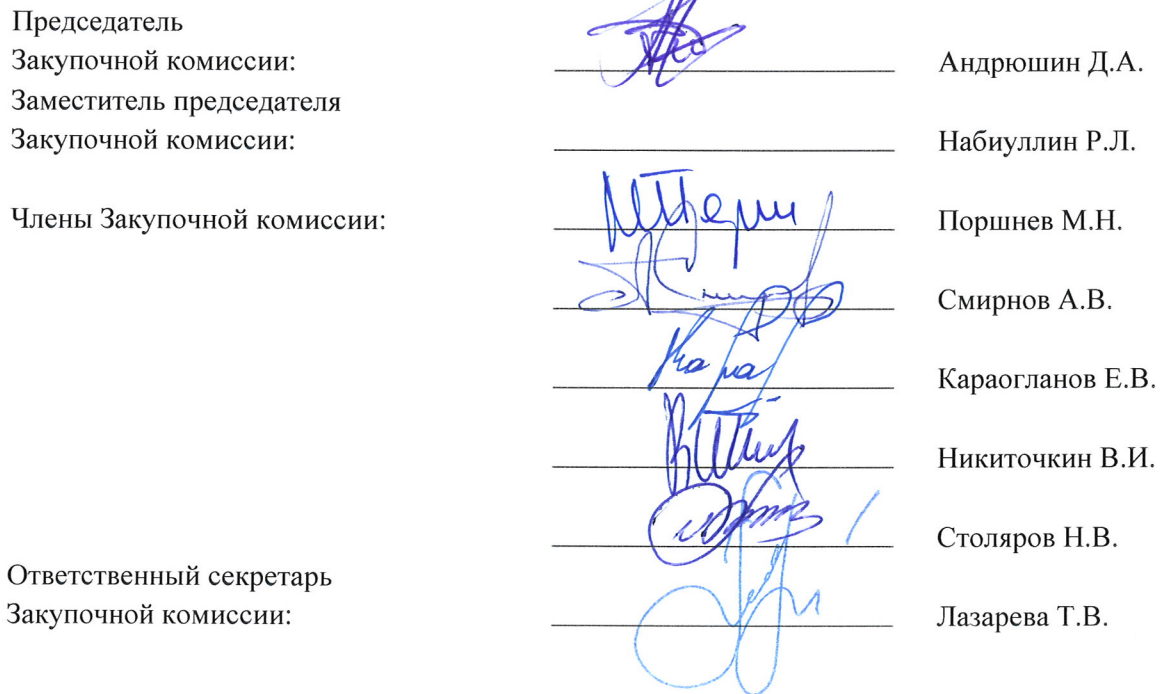 Председатель
Закупочной комиссии: Андрюшин Д.А.
Заместитель председателя
Закупочной комиссии: Набиуллин Р.Л.
Члены Закупочной комиссии: Поршнев М.Н.
Смирнов А.В.
Караогланов Е.В.
Никиточкин В.И.
Столяров Н.В.
Ответственный секретарь
Закупочной комиссии: Лазарева Т.В.